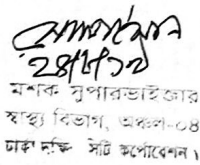 ২৪/৮/১৬
মশক সুপারভাইজার
স্বাস্থ্য বিভাগ, অঞ্চল-০৪
ঢাকা দক্ষিণ সিটি কর্পোরেশন।